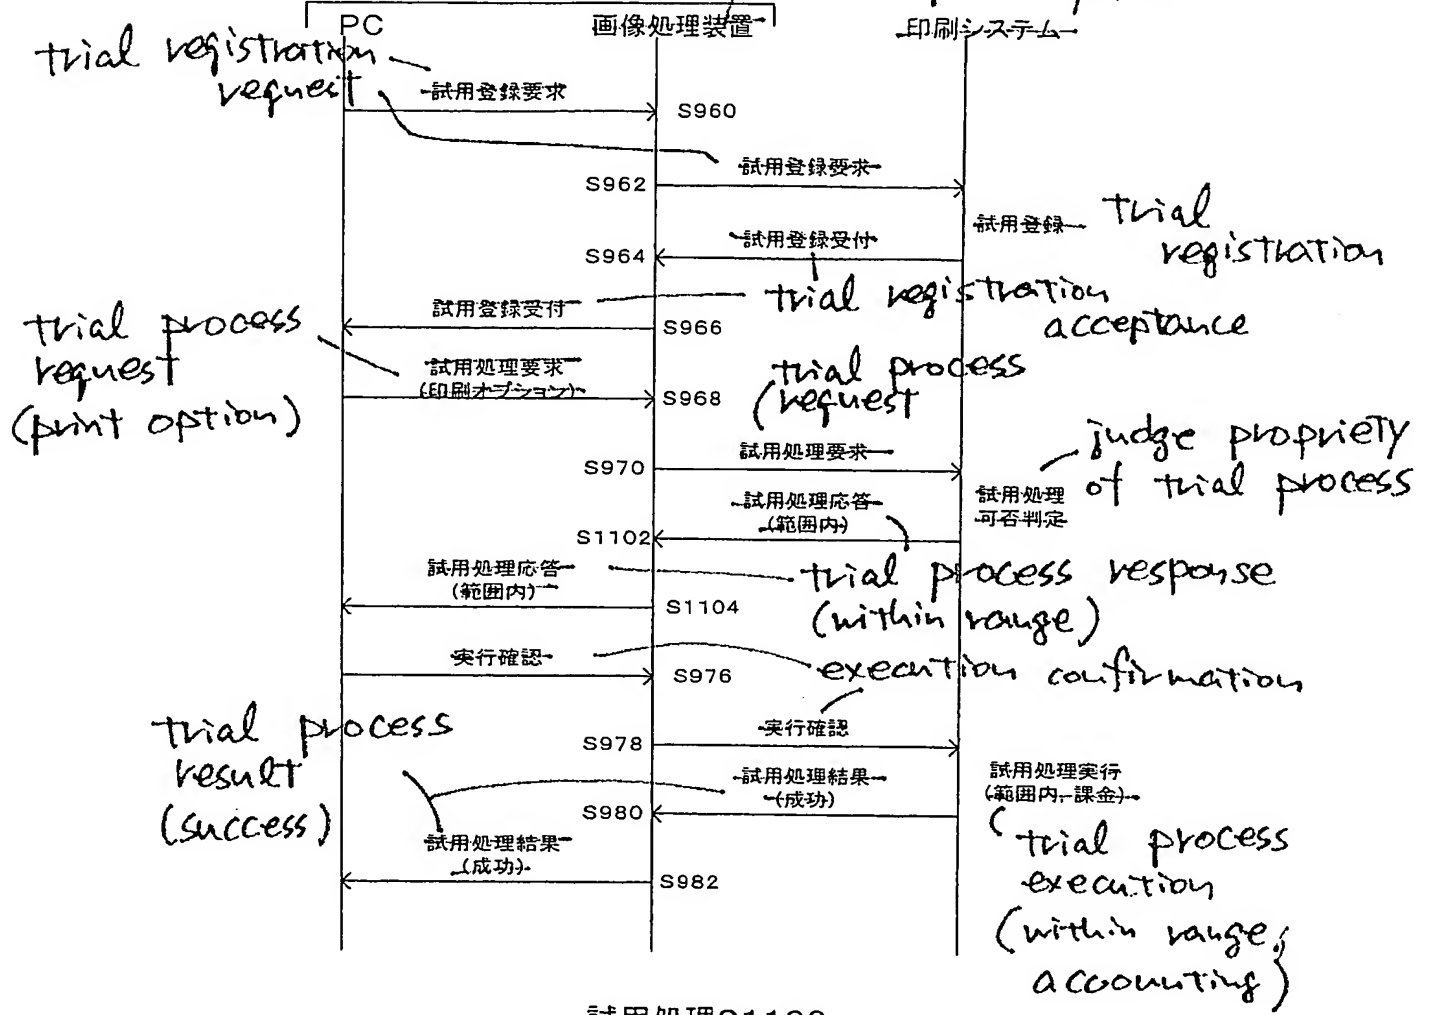 PC 画像処理装置 印刷システム
trial registration
request
試用登録要求
S960
試用登録要求
S962
試用登録
trial
registration
試用登録受付
S964
trial registration
acceptance
試用登録受付
S966
trial process
request
(print option)
試用処理要求
(印刷オプション)
S968
trial process
request
試用処理要求
S970
judge propriety
of trial process
試用処理
可否判定
試用処理応答
(範囲内)
S1102
試用処理応答
(範囲内)
S1104
trial process response
(within range)
実行確認
S976
execution confirmation
実行確認
S978
trial process
result
(success)
試用処理結果
(成功)
S980
試用処理実行
(範囲内、課金)
trial process
execution
(within range,
accounting)
試用処理結果
(成功)
S982